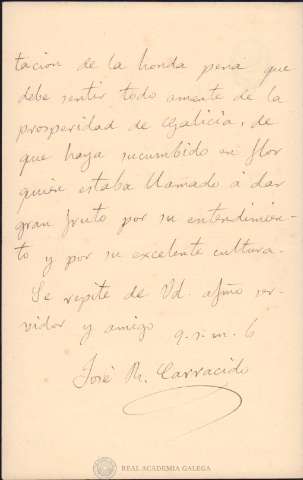 tación de la honda pena que
debe sentir todo amante de la
prosperidad de Galicia, de
que haya sucumbido en flor
quien estaba llamado á dar
gran fruto por su entendimien-
to y por su excelente cultura.
Se repite de Vd. afmo ser-
vidor y amigo q. s. m. b
José R. Carracido
REAL ACADEMIA GALEGA